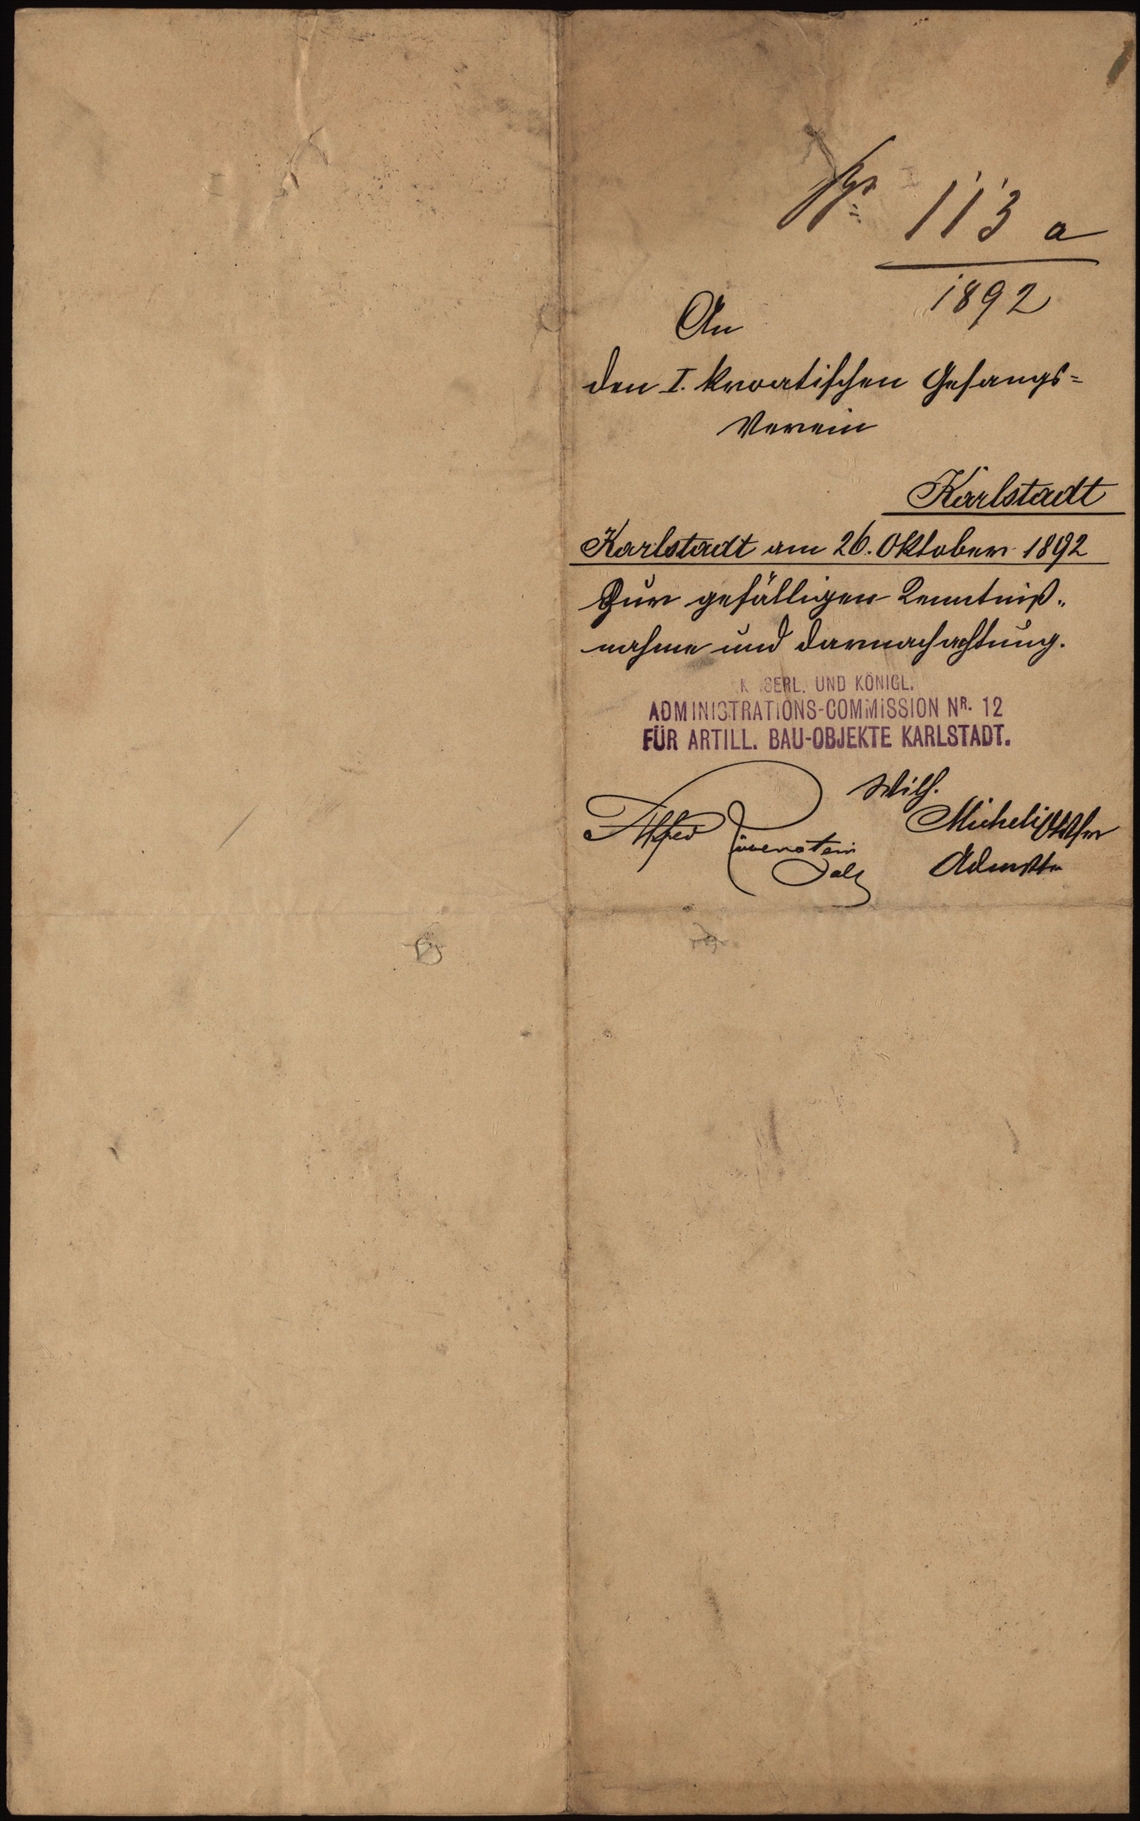 Nr. 113 a
1892
An
den I. kroatischen Gesangs=
Verein
Karlstadt
Karlstadt am 26. Oktober 1892
Zur gefälligen Kenntniß„
nahme und darnachachtung.
K SERL. UND KÖNIGL.
ADMINISTRATIONS-COMMISSION NR. 12
FÜR ARTILL. BAU-OBJEKTE KARLSTADT.
Wilh.
Alfred